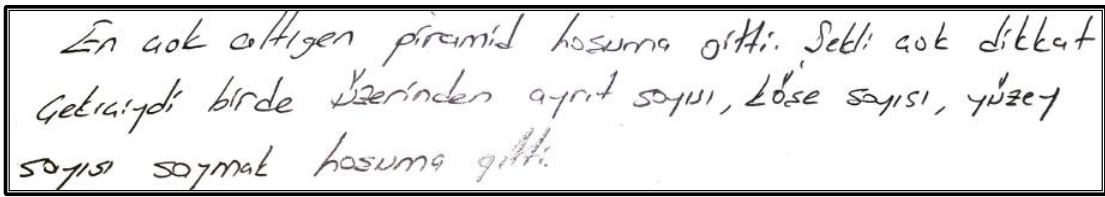 En çok altıgen piramid hoşuma gitti. Şekli çok dikkat
çekiciydi birde üzerinden ayrıt sayısı, köşe sayısı, yüzey
sayısı saymak hoşuma gitti.